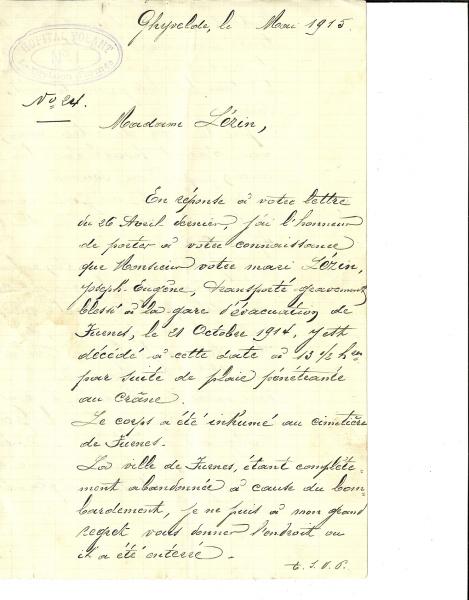 Ghyvelde, le Mai 1915.
HOPITAL VOLANT
No 1
No 24.
Madame Lézin,
En réponse à votre lettre
du 26 Avril dernier, j'ai l'honneur
de porter à votre connaissance
que Monsieur votre mari Lézin,
Joseph-Eugène, transporté gravement
blessé à la gare d'évacuation de
Furnes, le 21 October 1914, y est
décédé à cette date à 13 1/2 hres
par suite de plaie pénétrante
au Crâne.
Le corps a été inhumé au cimetière
de Furnes.
La ville de Furnes, étant complète-
ment abandonnée à cause du bom-
bardement, je ne puis à mon grand
regret vous donner l'endroit où
il a été enterré.
T. S. V. P.